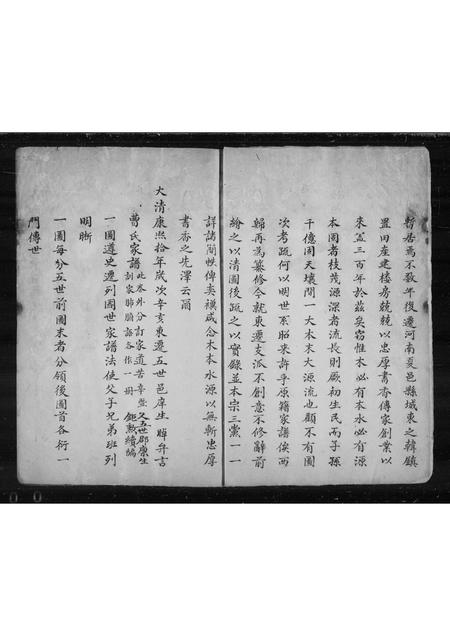 暫居焉不数年後遷河南夏邑縣城東之韓鎮
置田産建楼房兢兢以忠厚書香傳家創業以
来蓋三百年於茲矣窃惟木必有本水必有源
本固者枝茂源深者流長則厥初生民而子孫
千億同天壤間一大本末大源流也顧不有圖
次考疏何以明世系昭来許乎原籍家譜俟西
歸再為纂修今就東遷支派不創意不修辭前
繪之以清圖後疏之以實錄並本宗三黨一一
詳諸簡帙俾奕禩咸念木本水源以無慚忠厚
書香之先澤云爾
大清康熙拾年歲次辛亥東遷五世邑庠生暉弁言
曹氏家譜 此卷外分訂家道苦辛叠 又五世郡廪生
刻家肺腑語各作一冊 鉅勲續編
一圖遵史遷列國世家譜法使父子兄弟班列
明晰
一圖每分五世前圖末者分領後圖首各衍一
門傳世